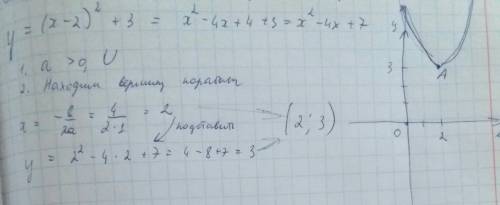 y = (x-2)² + 3 = x² - 4x + 4 + 3 = x² - 4x + 7
1. a > 0, U
2. Находим вершину параболы
x = -b/2a = 4/2·1 = 2
подставим
(2; 3)
y = 2² - 4·2 + 7 = 4 - 8 + 7 = 3
3
A
0
2